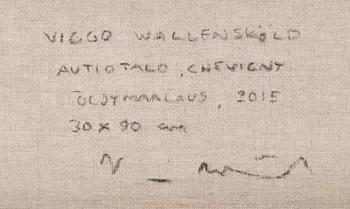 VIGGO WALLENSKÖLD
AUTIOTALO, CHEVIGNY
ÖLJYMAALAUS, 2015
30 x 90 cm